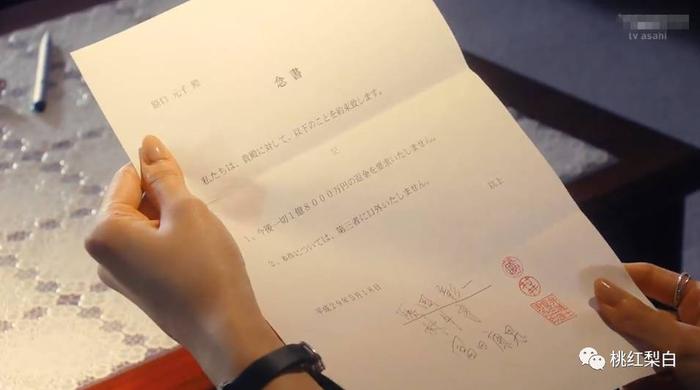 tv asahi
念書
原口 元子 殿
私たちは、貴殿に対して、以下のことを約束致します。
記
1、今後一切1億8000万円の返金を要求いたしません。
2、本件については、第三者に口外いたしません。
以上
平成29年5月18日
桃红梨白